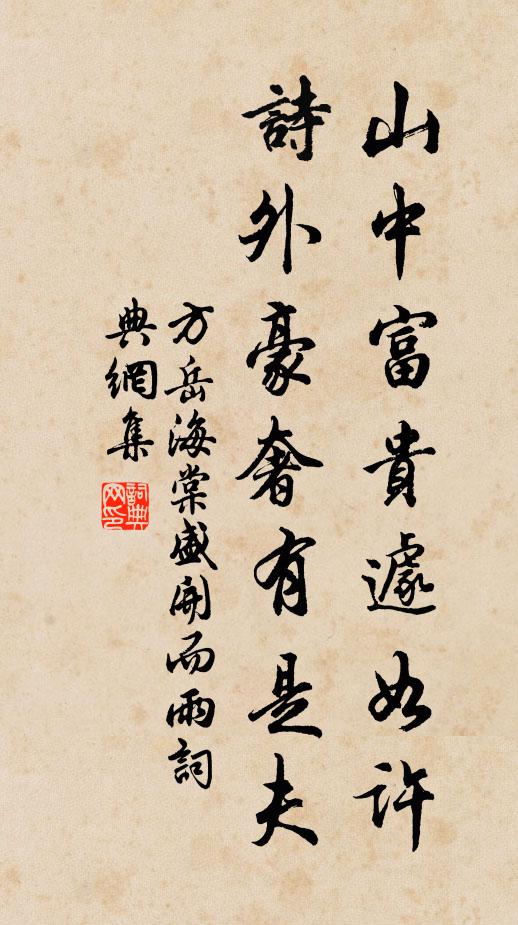 山中富貴遽如許
詩外豪奢有是夫
方岳海棠盛開而雨詞
典網集
詞典
网印